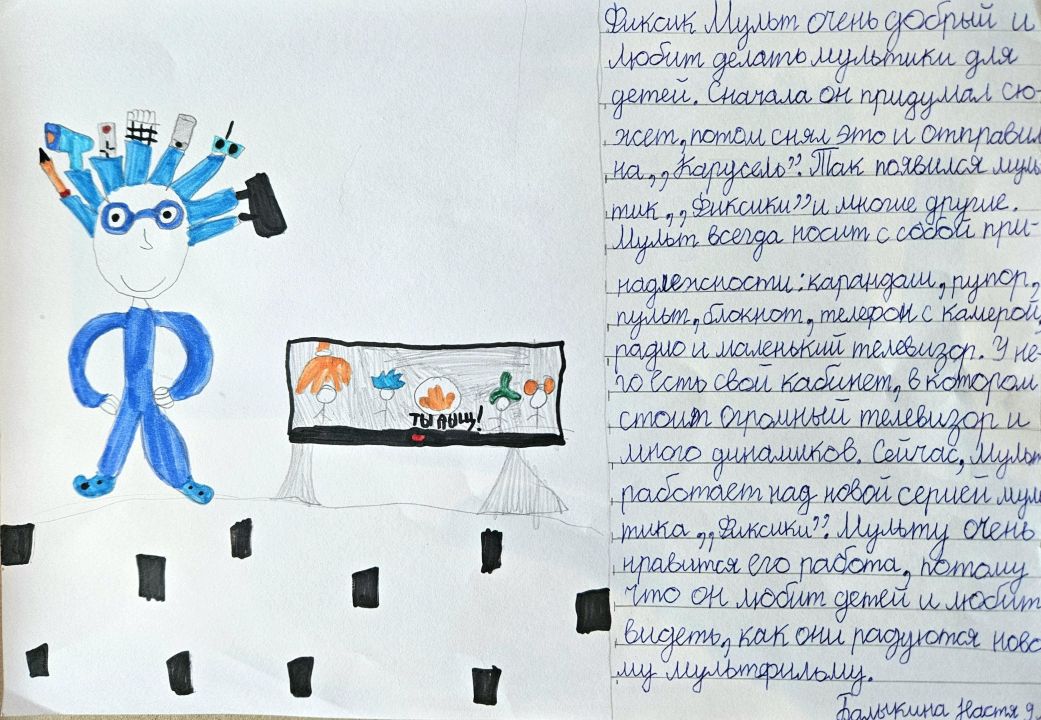 ТЫДЫЩ!
Фиксик Мульт очень добрый и
любит делать мультики для
детей. Сначала он придумал сю-
жет, потом снял это и отправил
на ,,Карусель”. Так появился муль
тик ,,Фиксики” и многие другие.
Мульт всегда носит с собой при-
надлежности: карандаш, рупор,
пульт, блокнот, телефон с камерой,
радио и маленький телевизор. У не-
го есть свой кабинет, в котором
стоит огромный телевизор и
много динамиков. Сейчас, Мульт
работает над новой серией мул
тика ,,Фиксики”. Мульту очень
нравится его работа, потому
что он любит детей и любит
видеть, как они радуются ново
му мультфильму.
Балыкина Настя 9